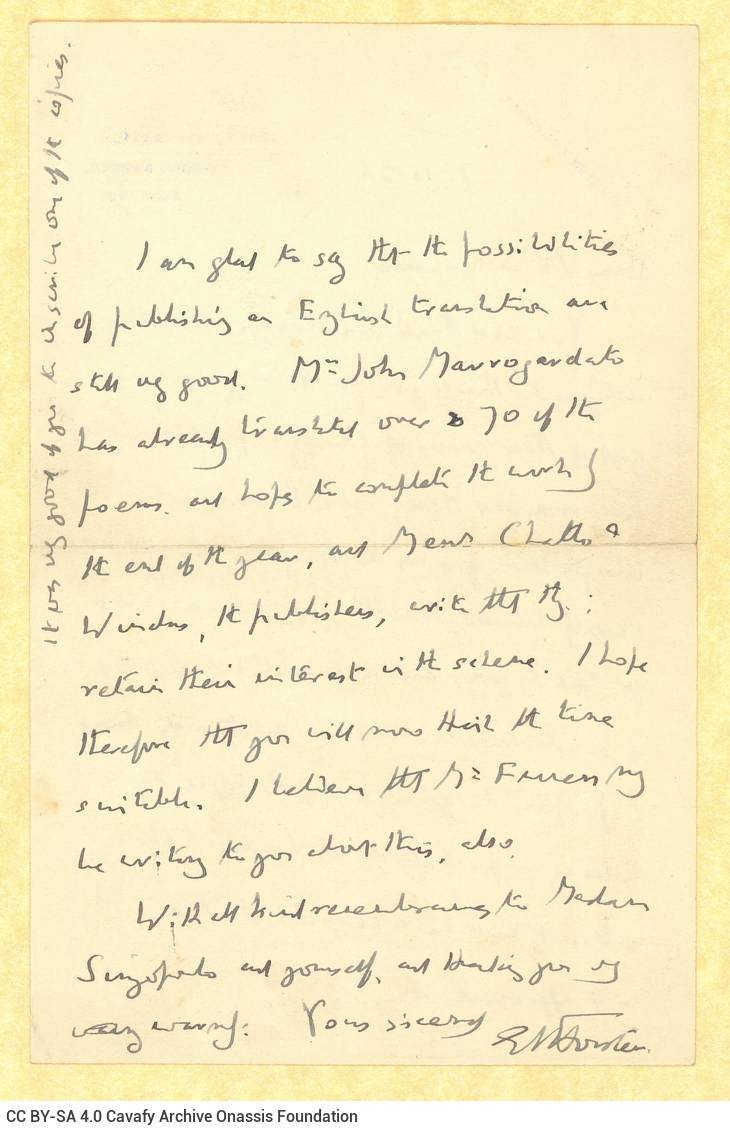 I am glad to say tht the possibilities
of publishing an English translation are
still vy good. Mr John Mavrogordato
has already translated over 70 of the
poems. and hopes to complete the work by
the end of the year, and Messrs Chatto &
Windus, the publishers, write tht they
retain their interest in the scheme. I hope
therefore tht you will now think the time
suitable. I believe tht Mr Furness may
be writing to you about this, also.
With all kind remembrances to Madam
Singopoulo and yourself, and thanking you vy
very warmly: Yours sincerely EMForster.
It was vy good of you to inscribe one of the copies.
CC BY-SA 4.0 Cavafy Archive Onassis Foundation